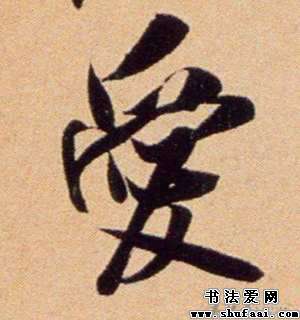 愛
书法爱网
www.shufaai.com